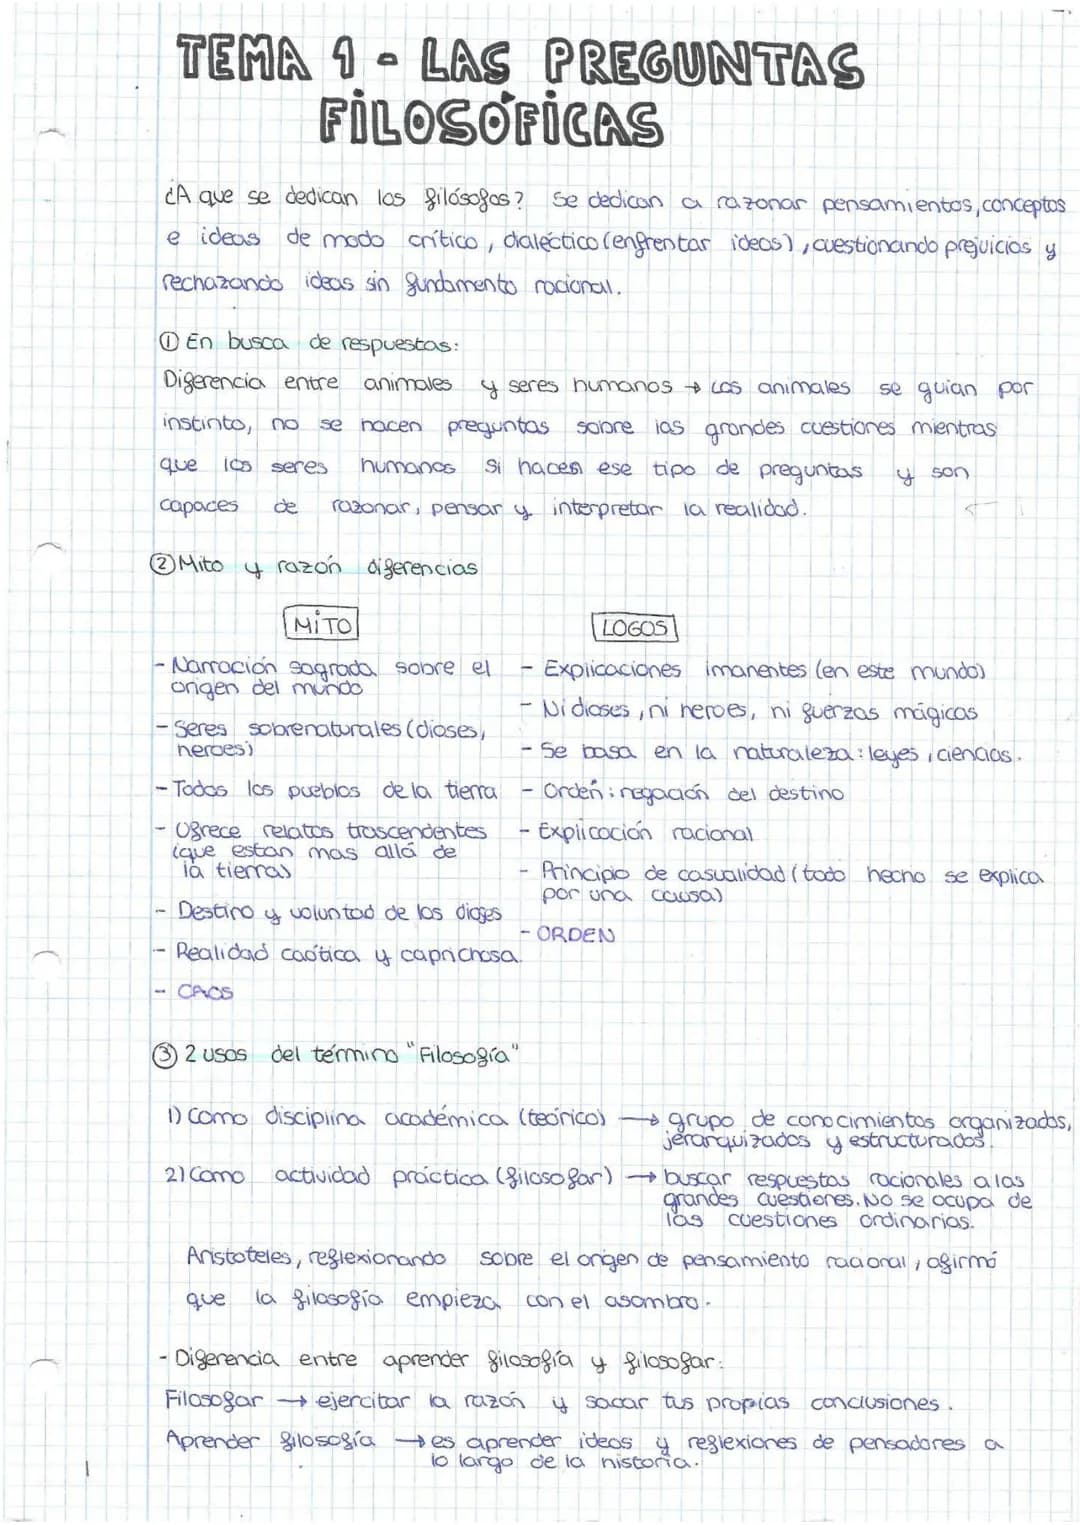 TEMA 1 - LAS PREGUNTAS
FILOSÓFICAS
¿A que se dedican los filósofos? Se dedican a razonar pensamientos, conceptos
e ideas de modo crítico, dialéctico (enfrentar ideas), cuestionando prejuicios y
rechazando ideas sin fundamento racional.
① En busca de respuestas:
Diferencia entre animales y seres humanos → Los animales se guian por
instinto, no se hacen preguntas sobre las grandes cuestiones mientras
que los seres humanos si hacen ese tipo de preguntas y son
capaces de razonar, pensar y interpretar la realidad.
② Mito y razón diferencias
MITO
LOGOS
- Narración sagrada sobre el
origen del mundo
- Seres sobrenaturales (dioses,
heroes)
- Todos los pueblos de la tierra
- Ofrece relatos trascendentes
(que estan mas allá de
la tierra)
- Destino y voluntad de los dioses
- Realidad caótica y caprichosa.
- CAOS
- Explicaciones imanentes (en este mundo)
- Ni dioses, ni heroes, ni fuerzas mágicas
- Se basa en la naturaleza: leyes, ciencias.
- Orden: negación del destino
- Explicación racional
- Principio de casualidad (todo hecho se explica
por una causa)
- ORDEN
③ 2 usos del término "Filosofía"
1) Como disciplina académica (teórico) → grupo de conocimientos organizados,
jerarquizados y estructurados.
2) Como actividad práctica (filosofar) → buscar respuestas racionales a las
grandes cuestiones. No se ocupa de
las cuestiones ordinarias.
Aristoteles, reflexionando sobre el origen de pensamiento racional, afirmó
que la filosofía empieza con el asombro.
- Diferencia entre aprender filosofía y filosofar:
Filosofar → ejercitar la razón y sacar tus propias conclusiones.
Aprender filosofía → es aprender ideas y reflexiones de pensadores a
lo largo de la historia.